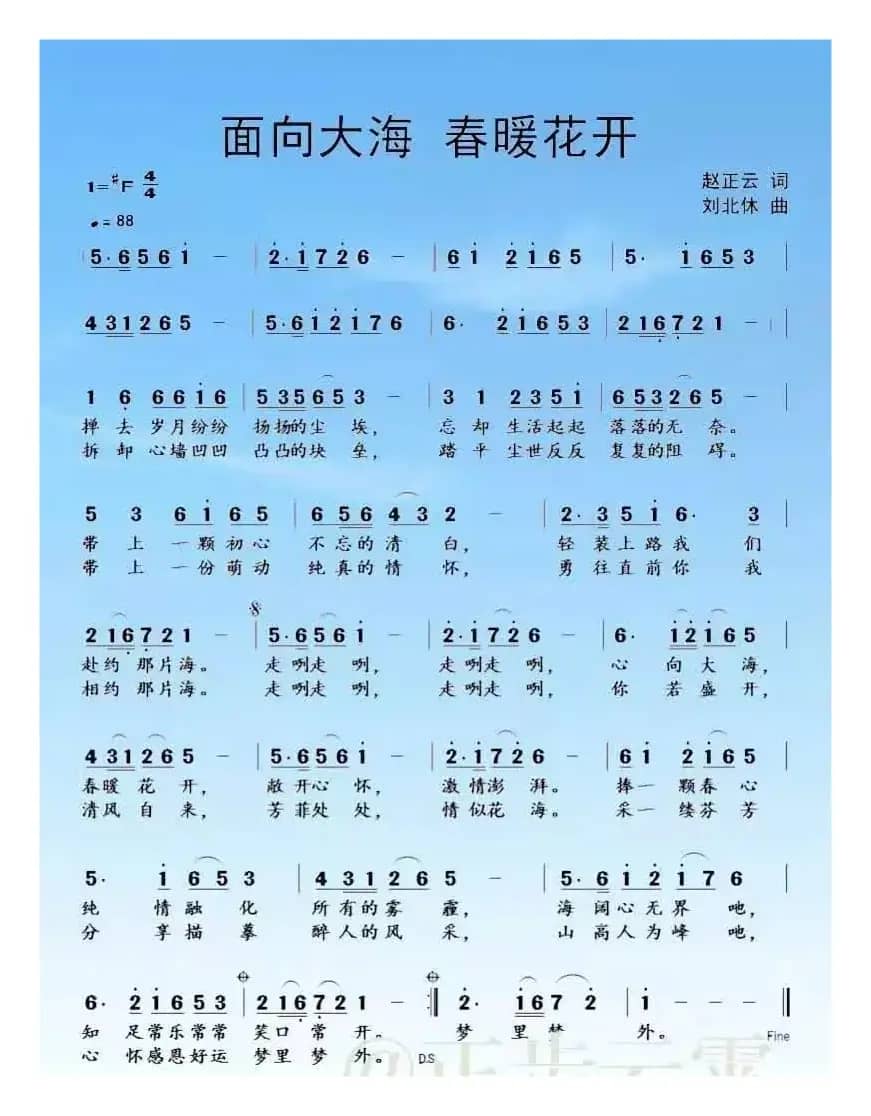 面向大海 春暖花开
1=#F 4/4
赵正云 词
♩= 88
刘北休 曲
5·6561 − | 2·1726 − | 61 2165 | 5· 1653 |
431265 − | 5·612176 | 6· 21653 | 216721 − |
1 6 6616 | 535653 − | 3 1 2351 | 653265 − |
掸去岁月纷纷 扬扬的尘埃， 忘却生活起起 落落的无奈。
拆卸心墙凹凹 凸凸的块垒， 踏平尘世反反 复复的阻碍。
5 3 6165 | 656432 − | 2·3516· 3 |
带上一颗初心 不忘的清白， 轻装上路我们
带上一份萌动 纯真的情怀， 勇往直前你我
216721 − | 5·6561 − | 2·1726 − | 6· 12165 |
赴约那片海。 走咧走咧， 走咧走咧， 心向大海，
相约那片海。 走咧走咧， 走咧走咧， 你若盛开，
431265 − | 5·6561 − | 2·1726 − | 61 2165 |
春暖花开， 敞开心怀， 激情澎湃。 捧一颗春心
清风自来， 芳菲处处， 情似花海。 采一缕芬芳
5· 1653 | 431265 − | 5·612176 |
纯情融化 所有的雾霾， 海阔心无界吔，
分享描摹 醉人的风采， 山高人为峰吔，
6· 21653 | 216721 − :| 2· 1672 | 1 − − − ||
知足常乐常常 笑口常开。 梦里梦外。 Fine
心怀感恩好运 梦里梦外。 D.S
@正步云霄